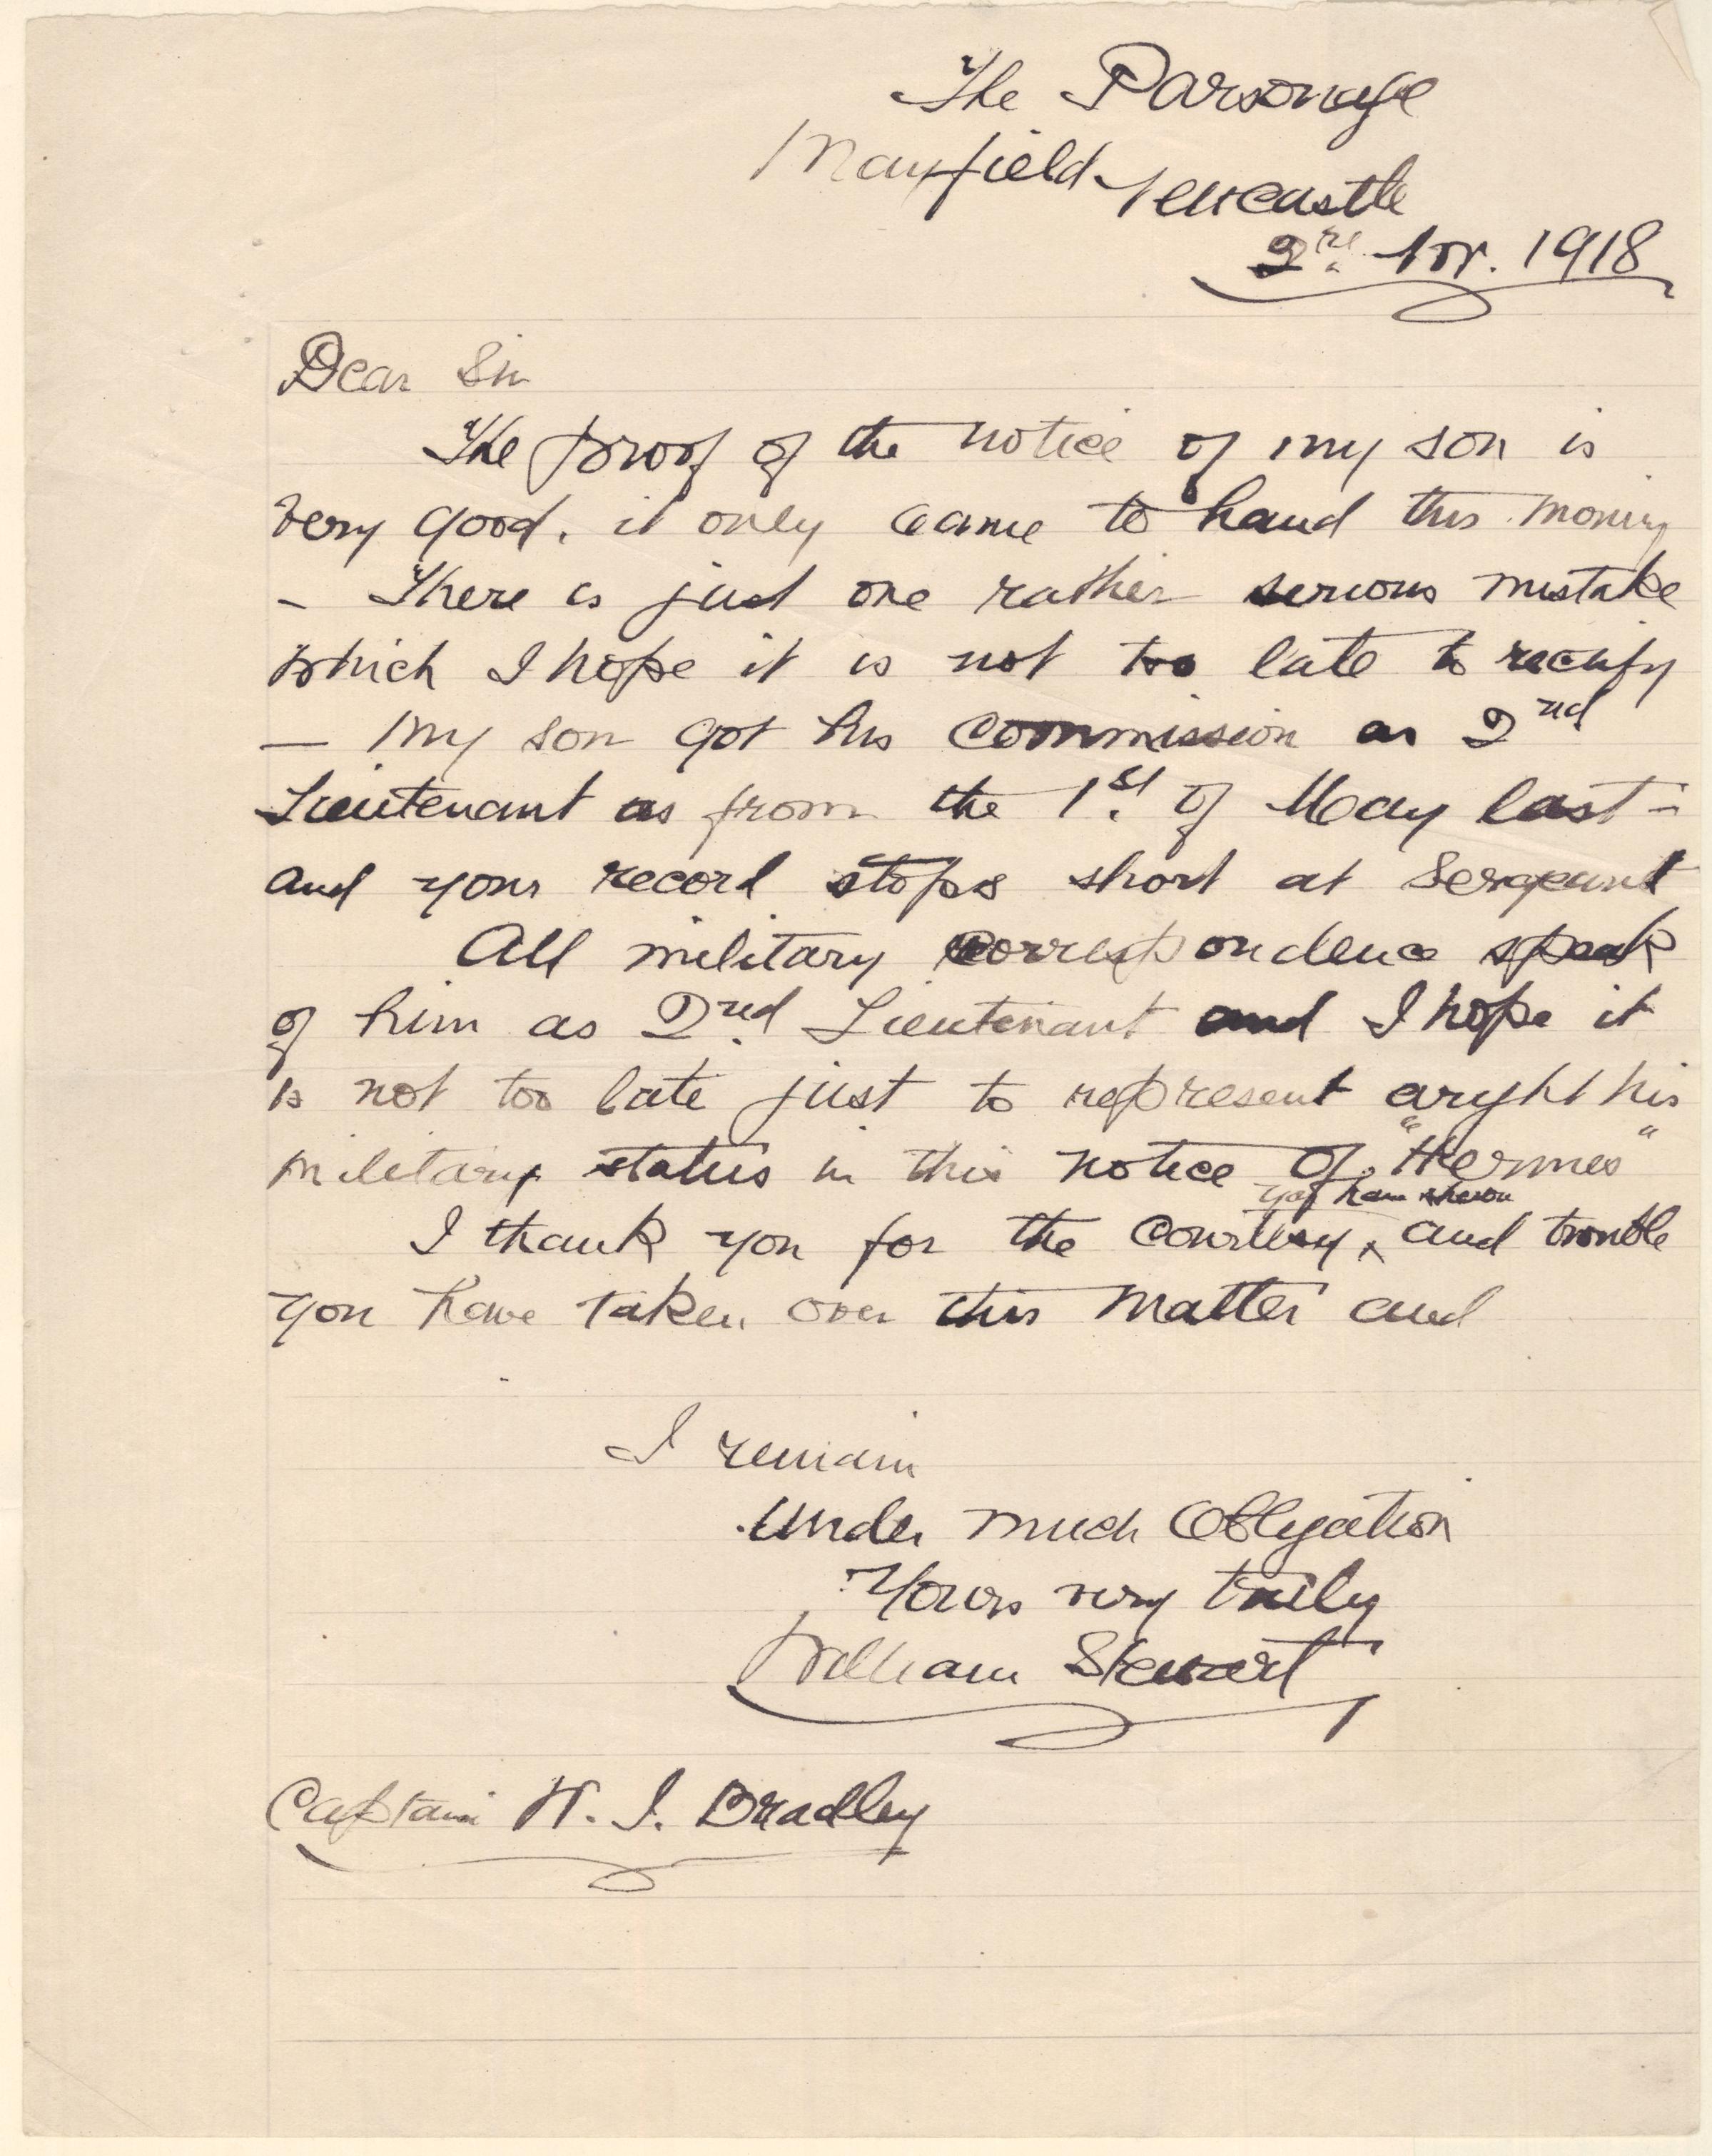 The Parsonage
Mayfield Newcastle
2nd Nov. 1918
Dear Sir
The proof of the notice of my son is
very good, it only came to hand this morning
- There is just one rather serious mistake
which I hope it is not too late to rectify
— My son got his commission as 2nd
Lieutenant as from the 1st of May last -
and your record stops short at Sergeant
All military correspondence speak
of him as 2nd Lieutenant and I hope it
is not too late just to represent aright his
military status in this notice of "Hermes"
you have shewn
I thank you for the courtesy x and trouble
you have taken over this matter and
I remain
Under much Obligation
Yours very truly
William Stewart
Captain H. J. Bradley